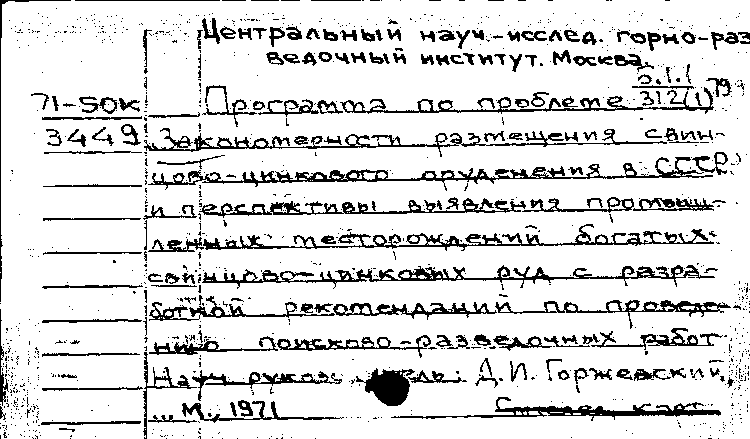 Центральный науч.-исслед. горно-раз
ведочный институт. Москва.
71-50К Программа по проблеме 5.1.1
312(1) 79
3449 "Закономерности размещения свин-
цово-цинкового оруденения в СССР
и перспективы выявления промыш-
ленных месторождений богатых
свинцово-цинковых руд с разра-
боткой рекомендаций по проведе-
нию поисково-разведочных работ
Науч. руковод : Д.И. Горжевский,
М., 1971